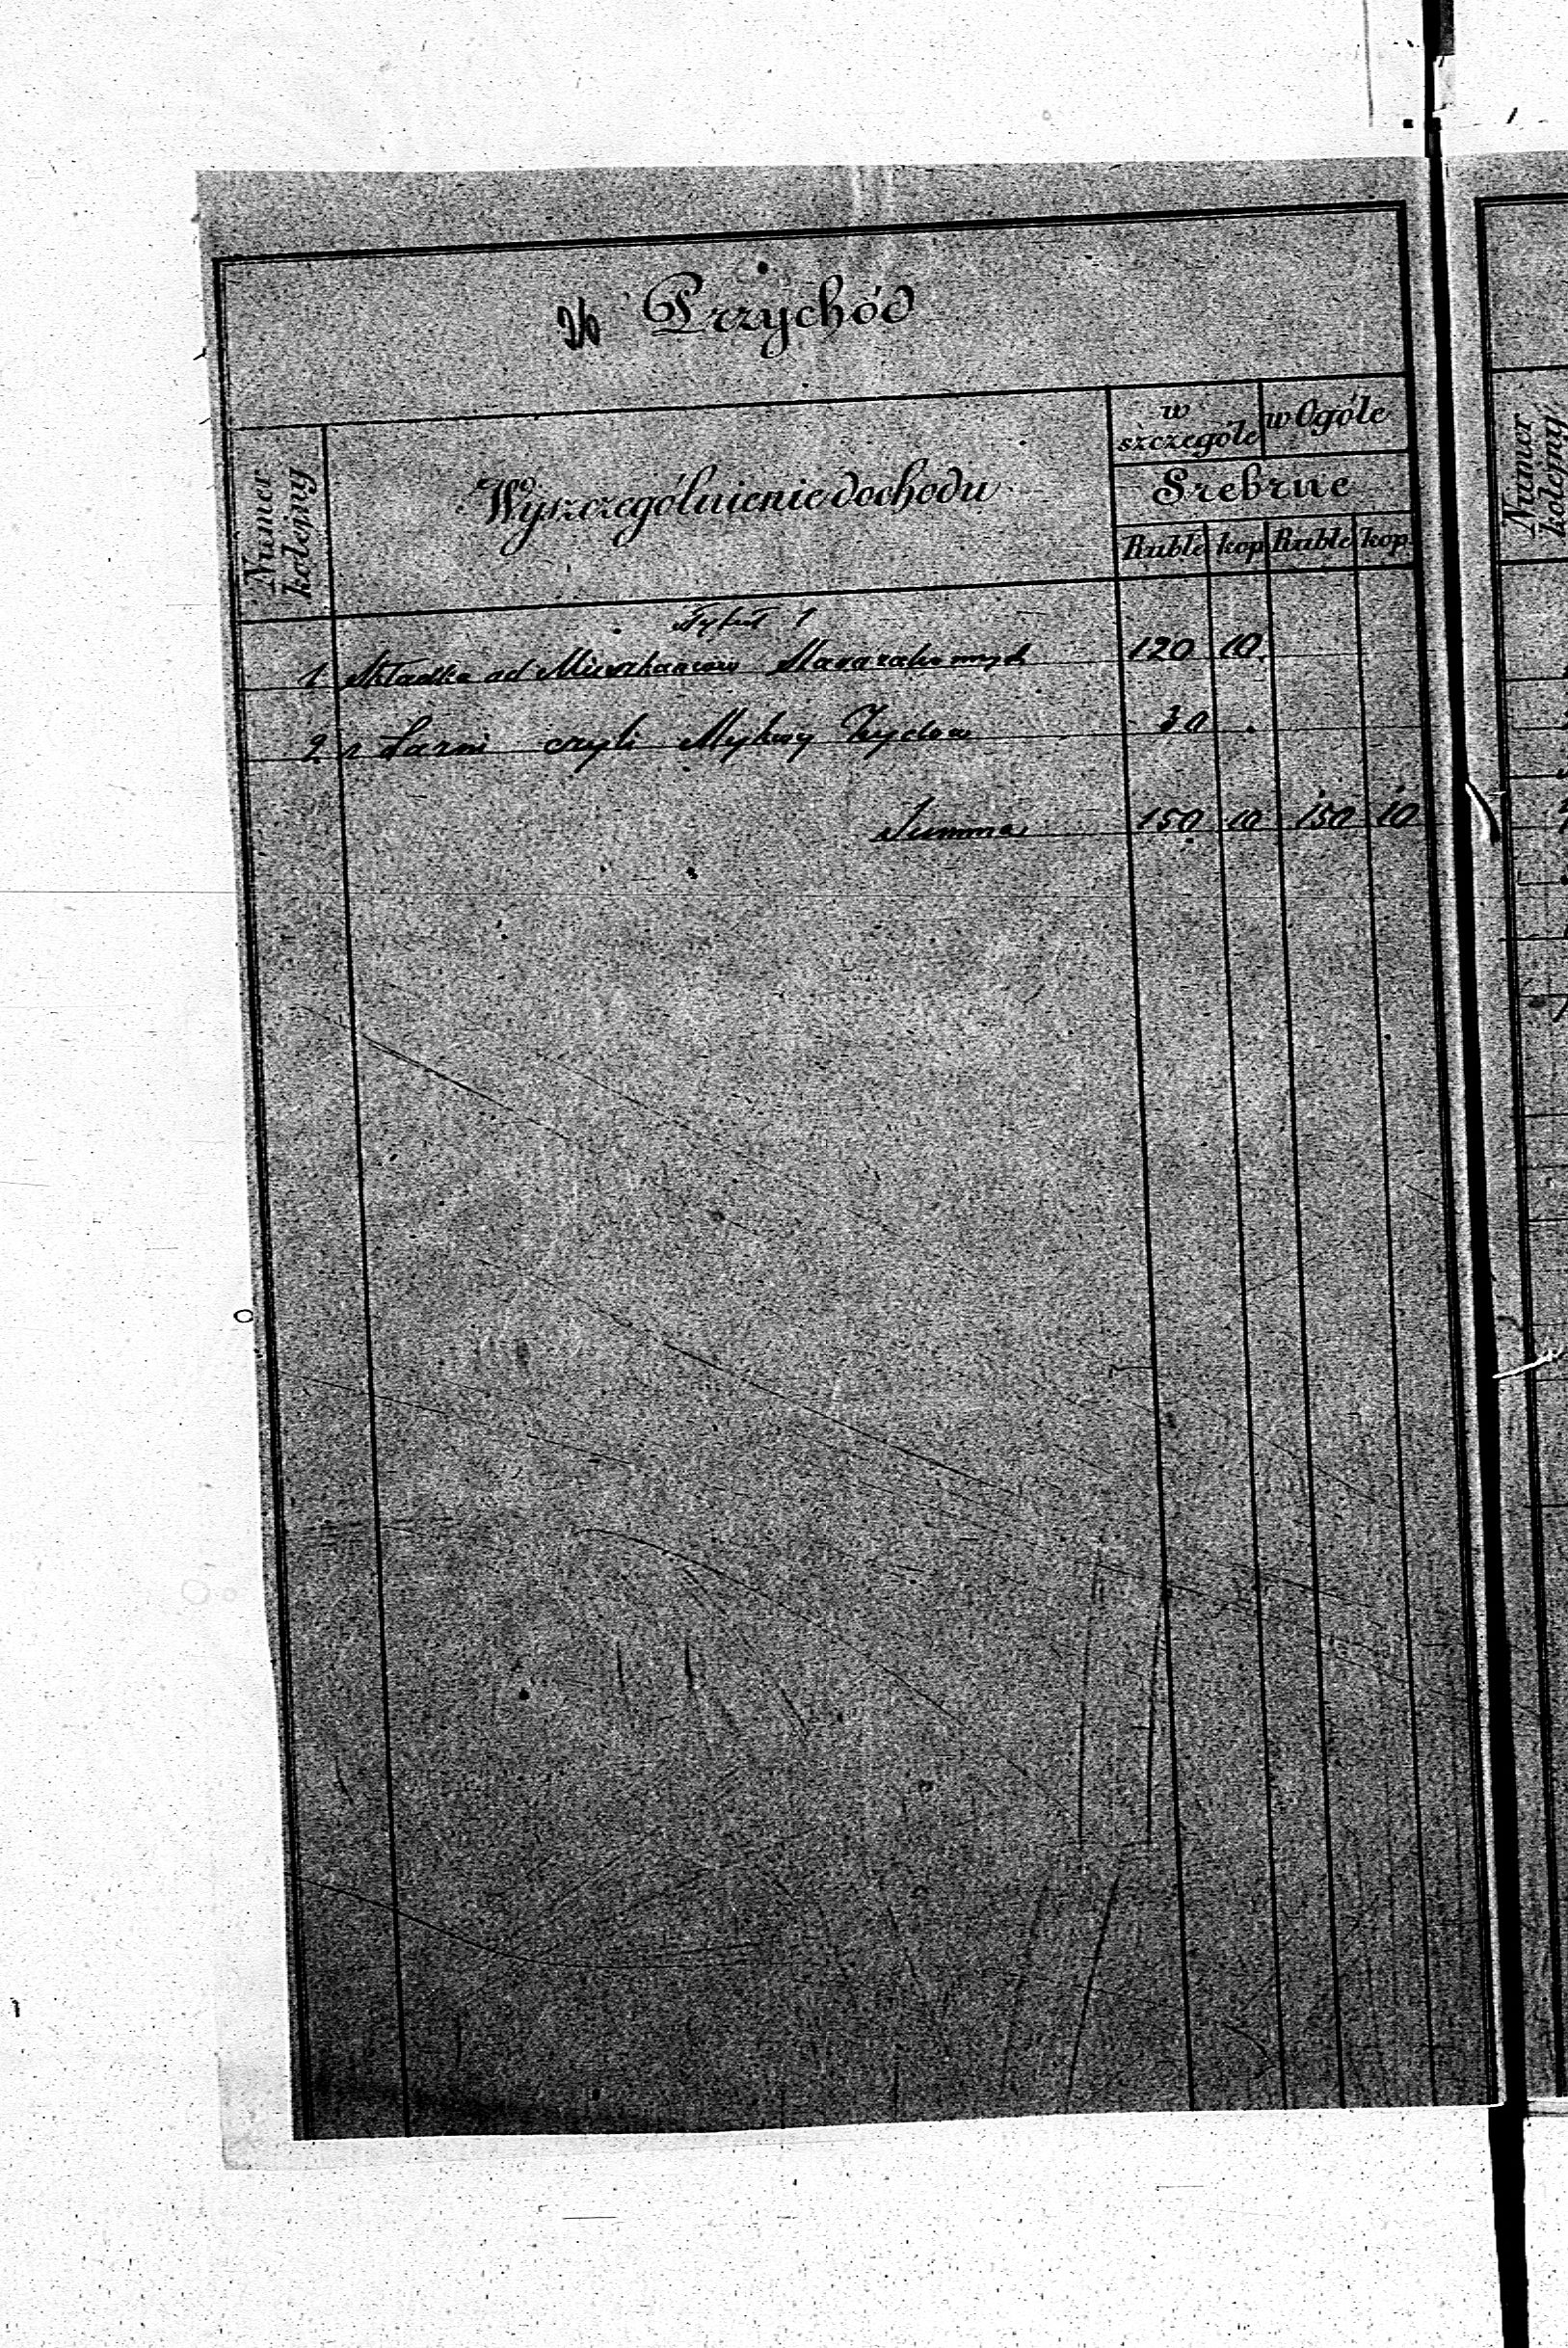 26 Przychód
Numer kolejny
Wyszczególnienie dochodu
w szczególe
w Ogóle
Srebrne
Ruble kop Ruble kop
Tytuł 1
1 Składka od Mieszkancow Starozakonnych 120 10
2 z Łazni czyli Mykwy Zydow 30 .
Summa 150 10 150 10
Numer kolejny